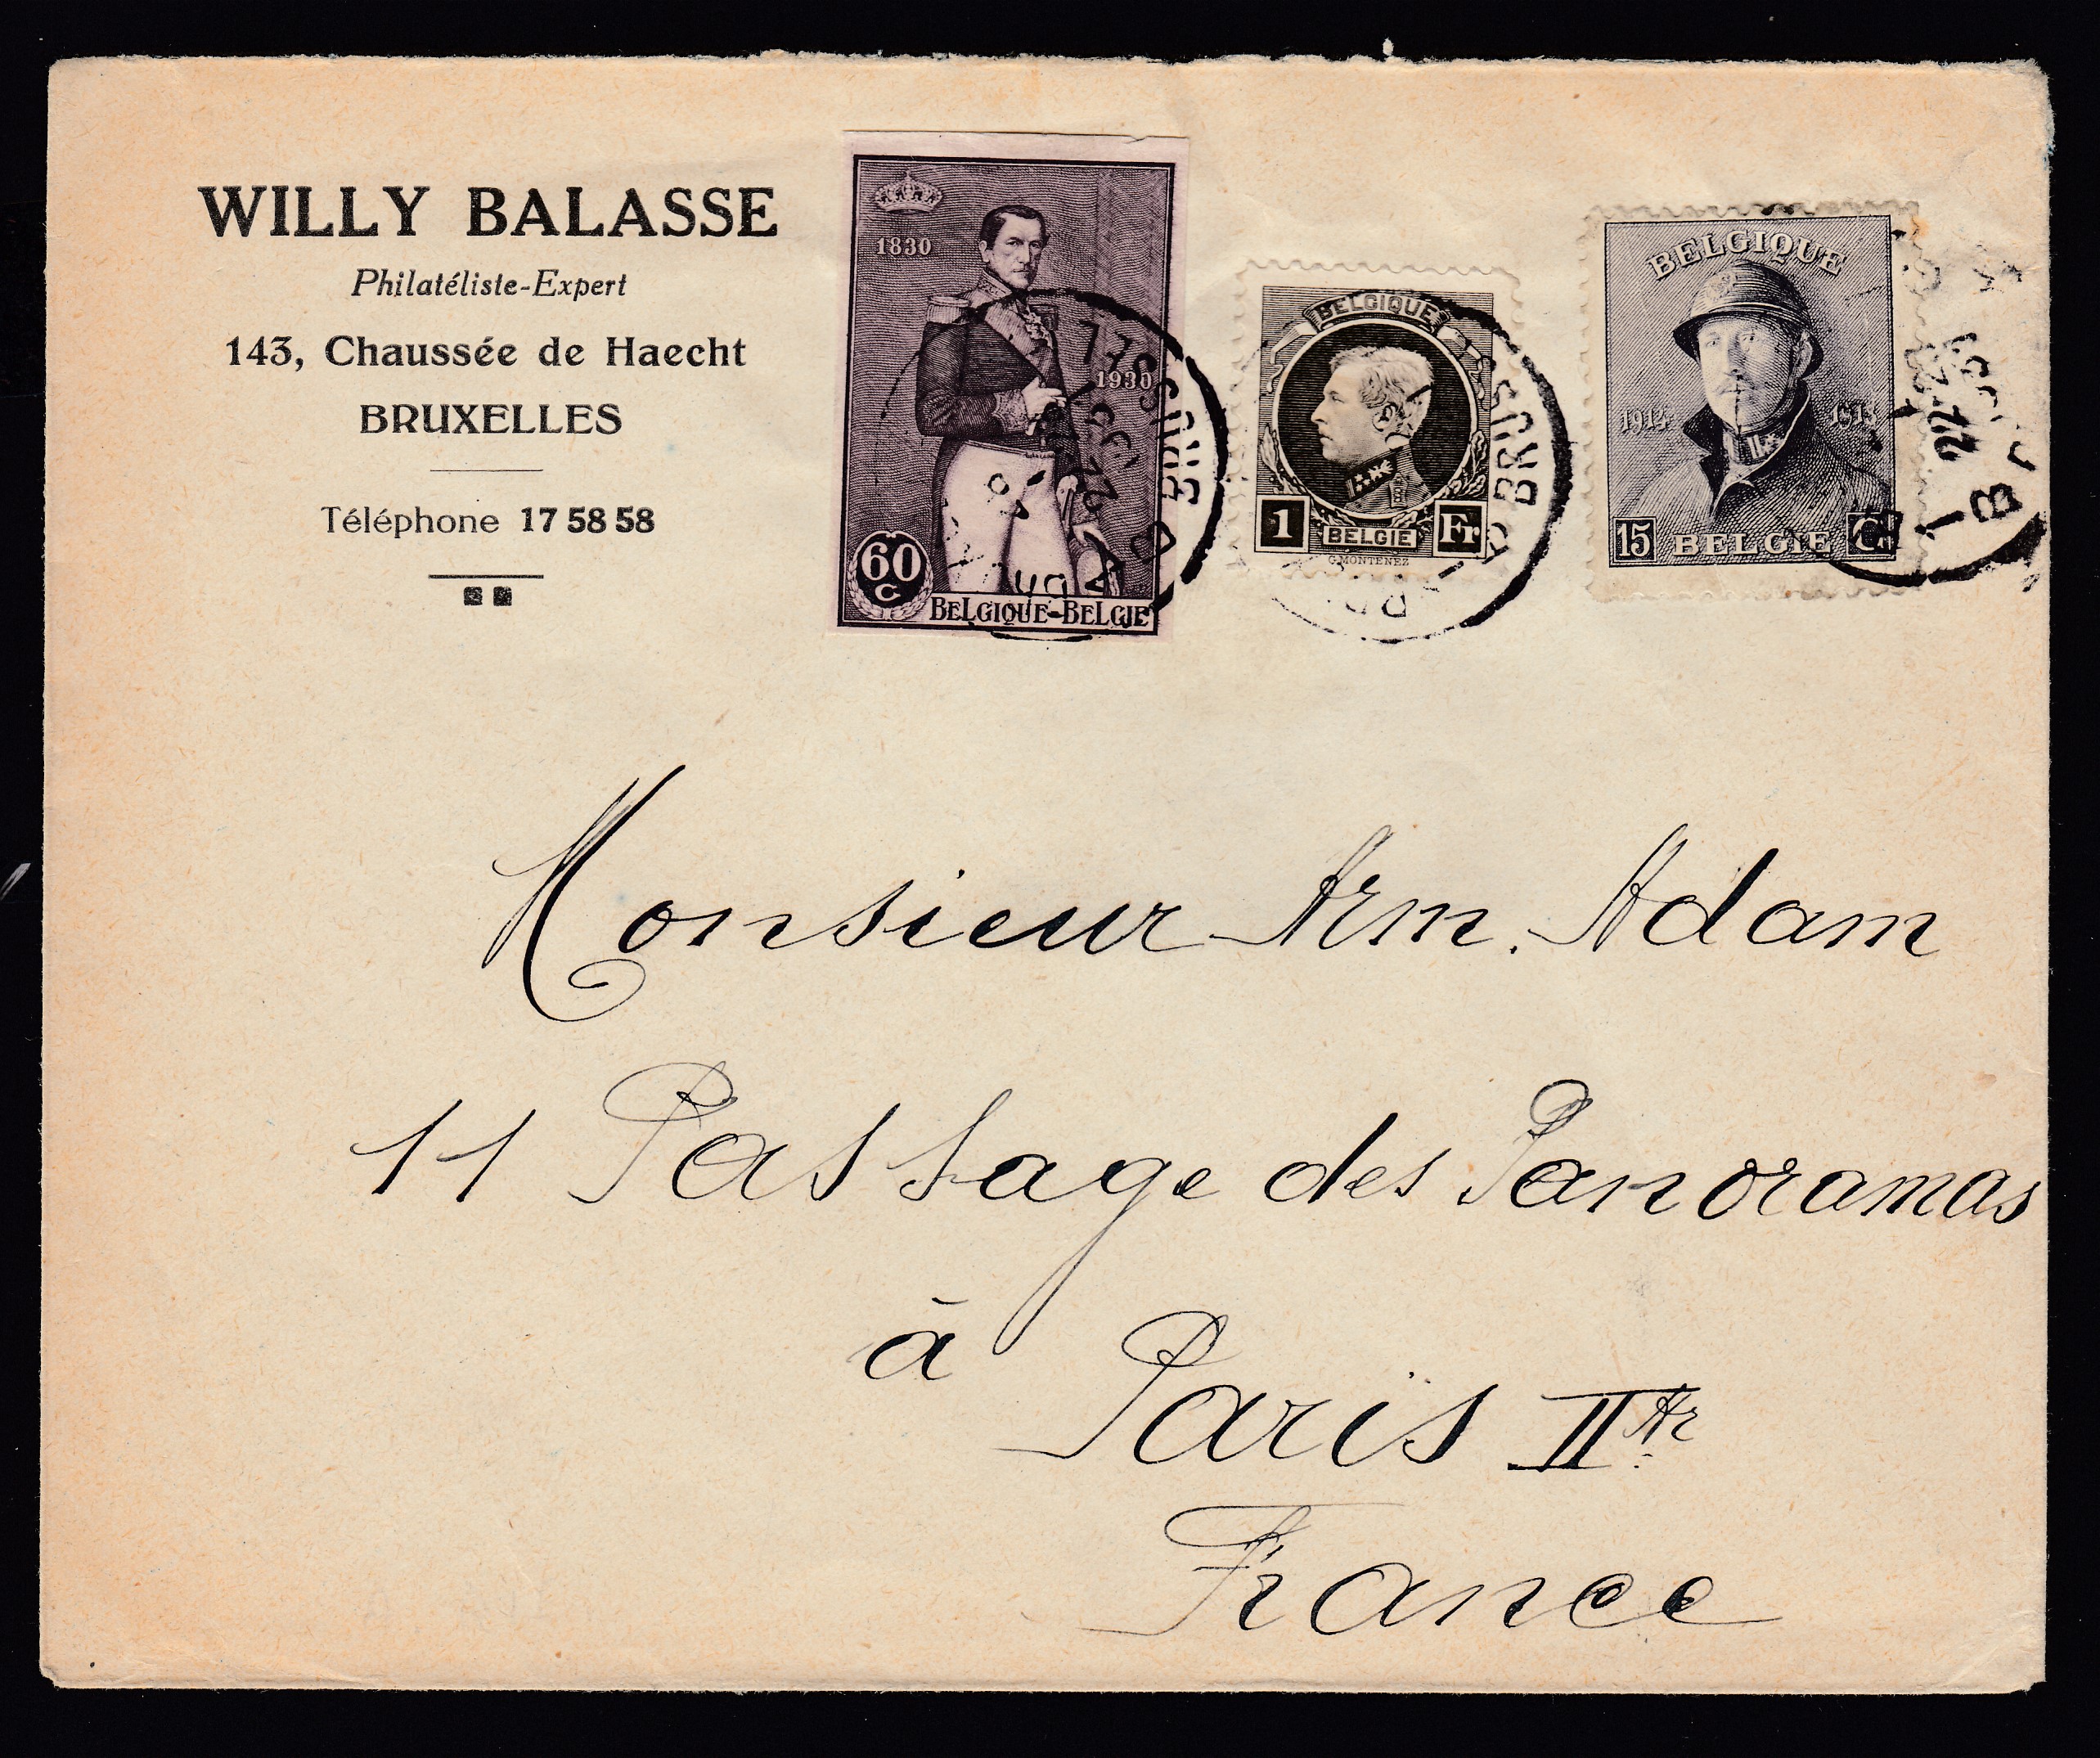 WILLY BALASSE
Philatéliste-Expert
143, Chaussée de Haecht
BRUXELLES
Téléphone 17 58 58
1830
1930
60
C
BELGIQUE-BELGIE
BELGIQUE
1 Fr
BELGIE
G.MONTENEZ
BELGIQUE
1914
15 BELGIE
BRUS
1931
Monsieur Arm. Adam
11 Passage des Panoramas
à Paris IIAr.
France